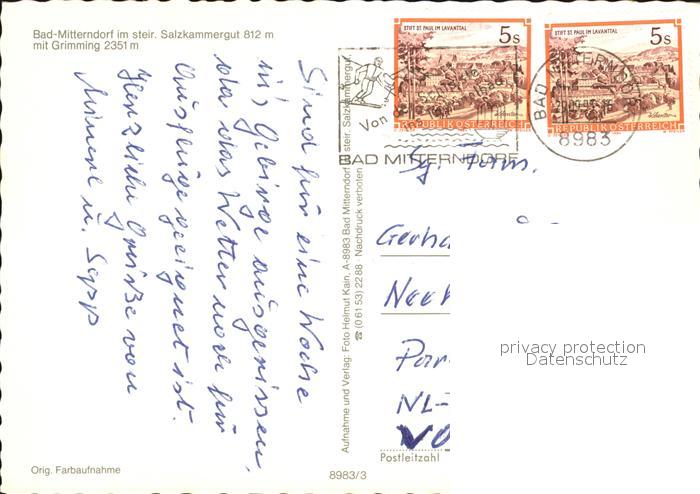 Bad-Mitterndorf im steir. Salzkammergut 812 m
mit Grimming 2351 m
Sind für eine Woche
ins Gebirge ausgerissen,
da das Wetter noch für
Ausflüge geeignet ist.
Herzliche Grüße von
Minerl u. Sepp
Orig. Farbaufnahme
8983/3
Aufnahme und Verlag: Foto Helmut Kain, A-8983 Bad Mitterndorf steir. Salzkammergut
☎ (0 61 53) 22 88 · Nachdruck verboten
STIFT ST. PAUL IM LAVANTTAL
5s
REPUBLIK ÖSTERREICH
STIFT ST. PAUL IM LAVANTTAL
5s
REPUBLIK ÖSTERREICH
Von
BAD MITTERNDORF
BAD MITTERNDORF
8983
Fam.
Gerha
Par
NL-
Postleitzahl
privacy protection
Datenschutz